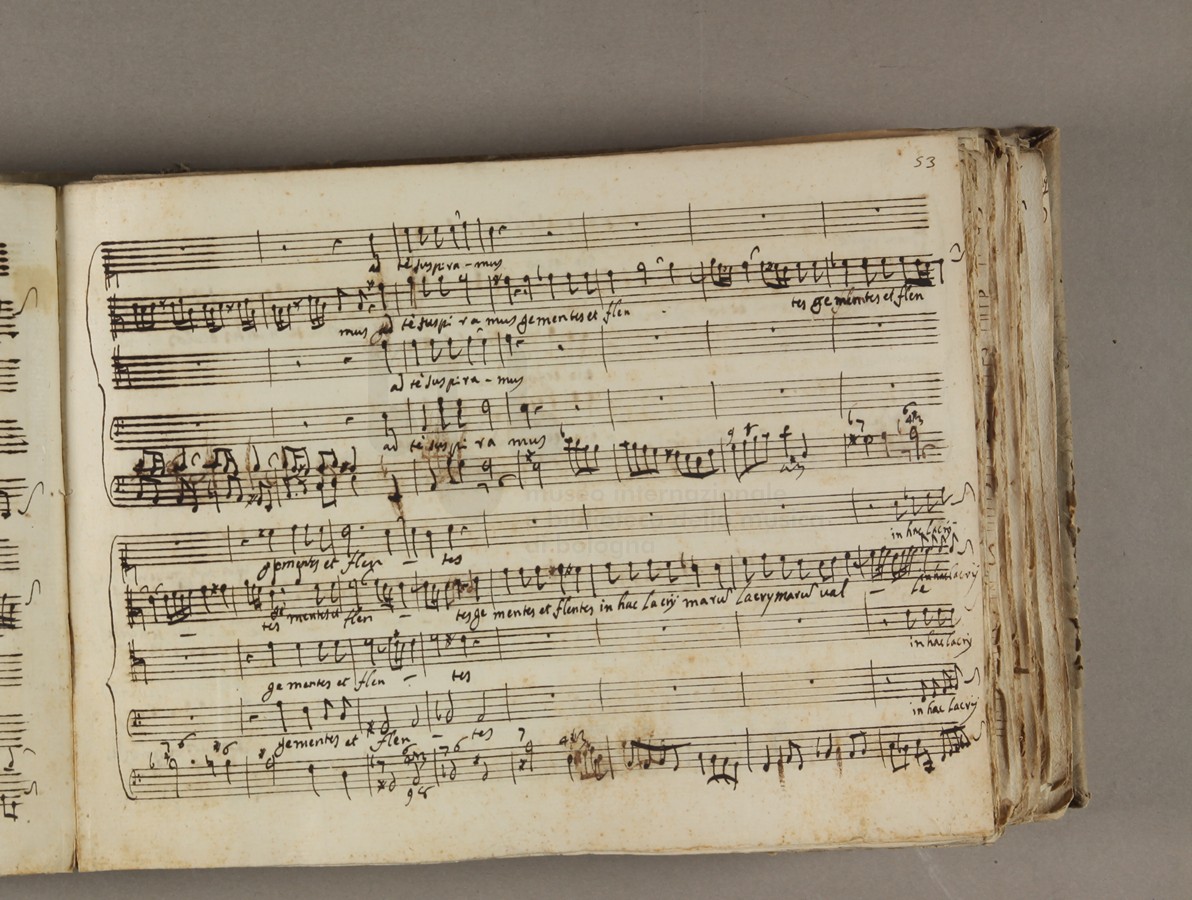 53
ad te suspira - mus
mus ad te suspi ra mus gementes et flen tes gementes et flen
ad te suspira - mus
ad te suspi ra mus
museo internazionale
e biblioteca della musica
di bologna
gementes et flen - tes in hac lacrÿ
tes gementes et flen - tes gementes et flentes in hac lacrÿ maru lacrymaru val - le in hac lacrÿ
gementes et flen - tes in hac lacrÿ
gementes et flen - tes in hac lacrÿ